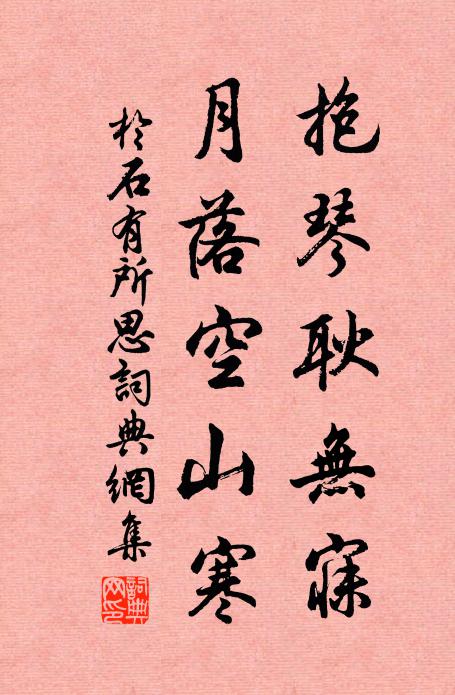 抱琴耿無寐
月落空山寒
於石有所思詞典網集
詞典網印